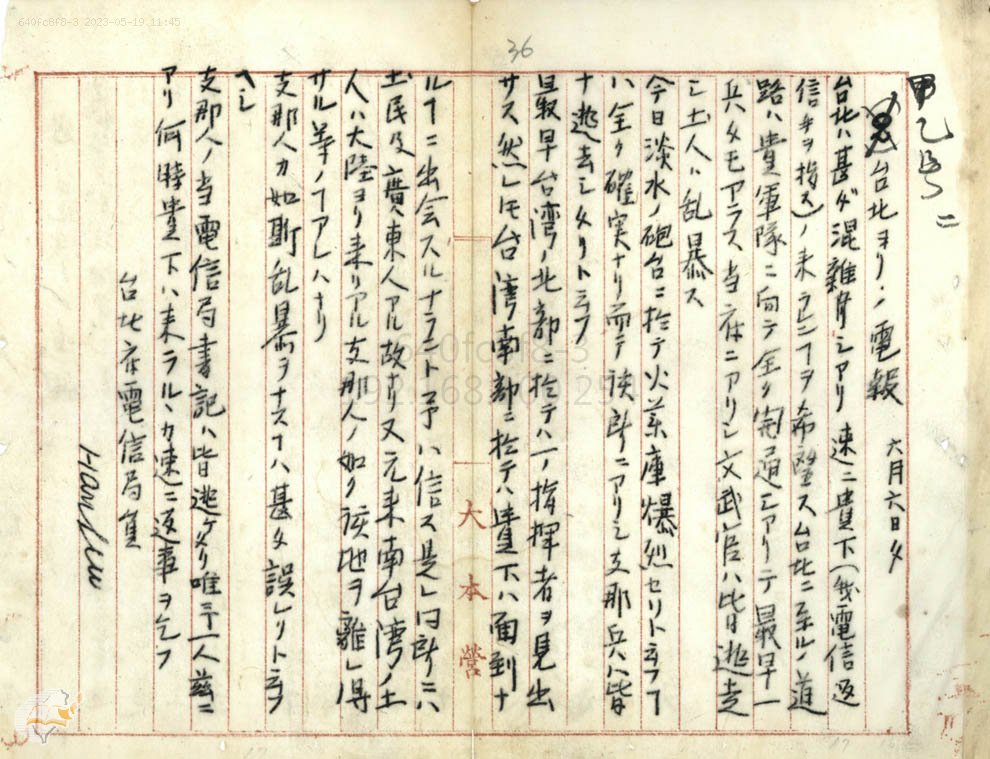 640fc8f8-3 2023-05-19 11:45
36
乙号ノ二
台北ヨリノ電報 六月六日夕
台北ハ甚ダ混雜ヲ〆シアリ 速ニ貴下(我電信返
信手ヲ指ス)ノ来ラレンヿヲ希望ス台北ニ至ルノ道
路ハ貴軍隊ニ向テ全ク開通シアリテ最早一
兵タモアラス当府ニアリシ文武官ハ皆逃走
シ土人ハ乱暴ス
今日淡水ノ砲台ニ於テ火薬庫爆烈セリト云フヿ
ハ全ク確実ナリ而テ該所ニアリシ支那兵ハ皆
ナ逃去シタリト云フ
最早台湾ノ北部ニ於テハ一ノ指揮者ヲ見出
サス然レモ台湾南部ニ於テハ貴下ハ面倒ナ
ルヿニ出会スルナラント予ハ信ス是レ同所ニハ
土民及廣東人アル故ナリ又元来南台湾ノ土
人ハ大陸ヨリ来リアル支那人ノ如ク該地ヲ離レ得
サル等ノヿアレハナリ
支那人カ如斯乱暴ヲナスヿハ甚タ誤レリト云フ
ヘシ
支那人ノ当電信局書記ハ皆逃ケタリ唯予一人茲ニ
アリ何時貴下ハ来ラルヽカ速ニ返事ヲ乞フ
台北府電信局員
Hansen
大本營
640fc8f8-3